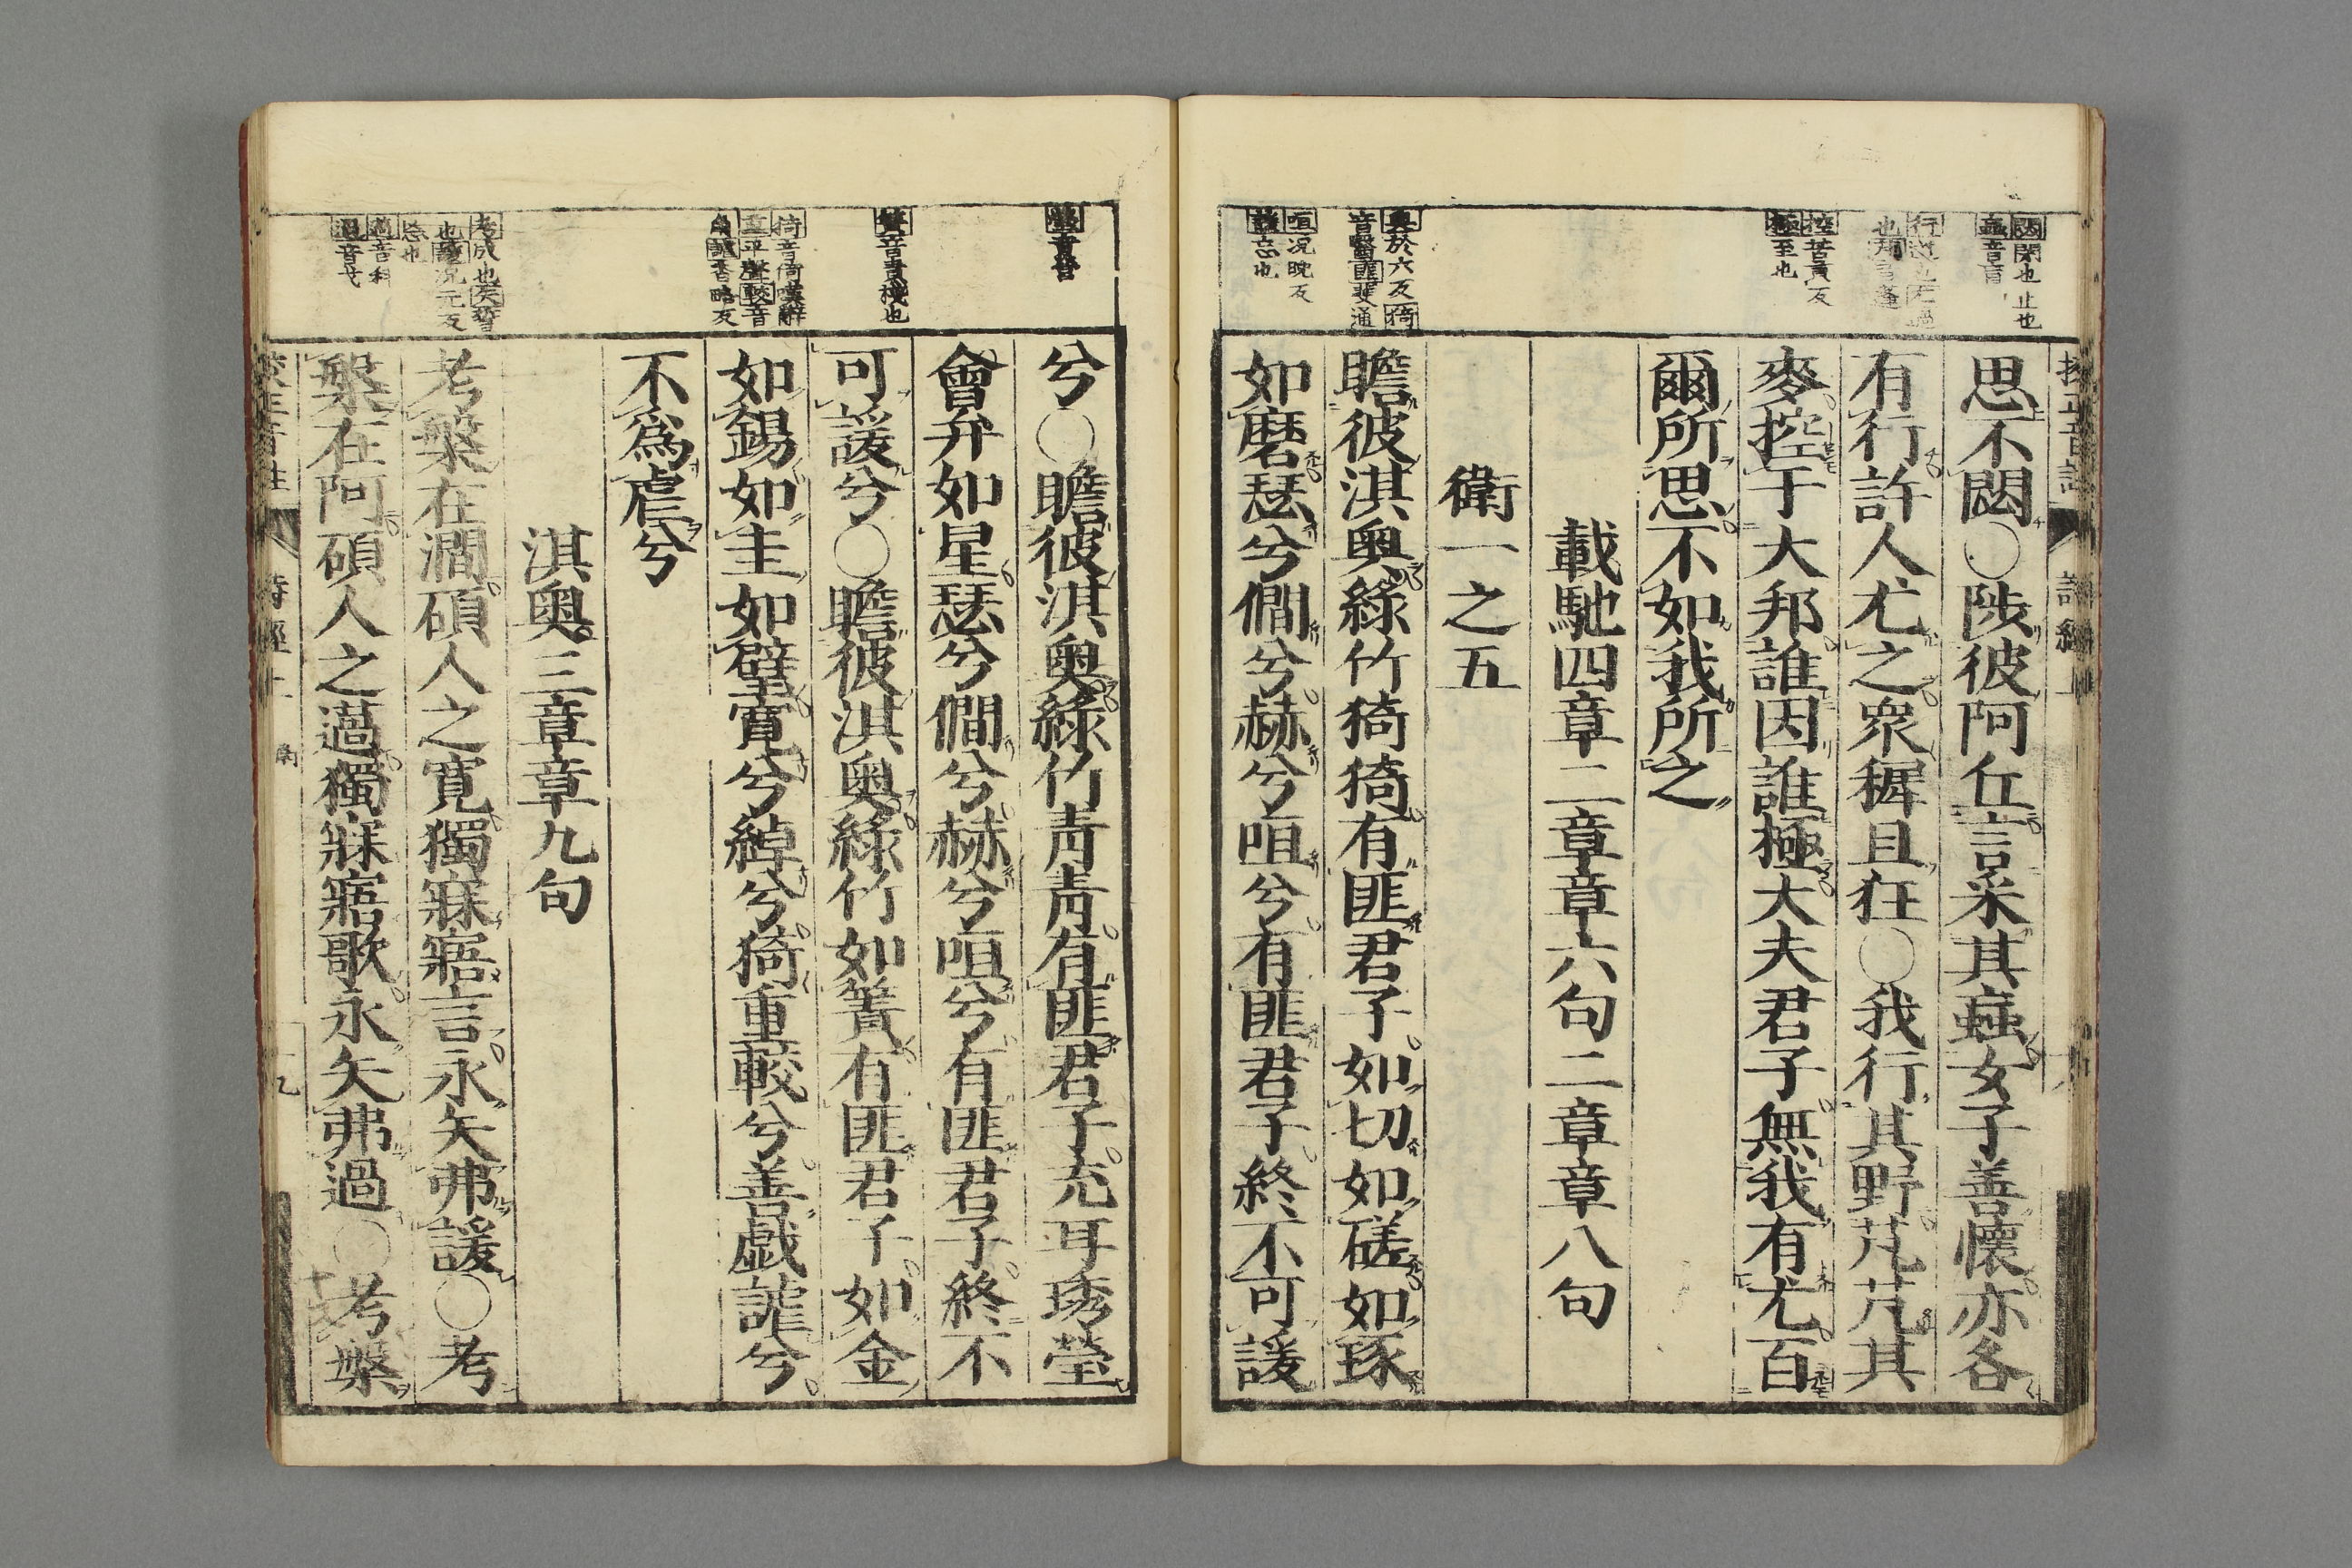 思不閟○陟彼阿丘言采其蝱女子善懷亦各
有行許人尤之衆穉且狂○我行其野芃芃其
麥控于大邦誰因誰極大夫君子無我有尤百
爾所思不如我所之
載馳四章二章章六句二章章八句
衛一之五
瞻彼淇奧綠竹猗猗有匪君子如切如磋如琢
如磨瑟兮僩兮赫兮咺兮有匪君子終不可諼
兮○瞻彼淇奧綠竹青青有匪君子充耳琇瑩
會弁如星瑟兮僩兮赫兮咺兮有匪君子終不
可諼兮○瞻彼淇奧綠竹如簀有匪君子如金
如錫如圭如璧寬兮綽兮猗重較兮善戯謔兮
不爲虐兮
淇奧三章章九句
考槃在澗碩人之寬獨寐寤言永矢弗諼○考
槃在阿碩人之薖獨寐寤歌永矢弗過○考槃
閟閉也止也
蝱音盲
控苦貢反
極至也
奧於六反猗
音醫匪斐通
咺况晚反
諼忘也
簀音責棧也